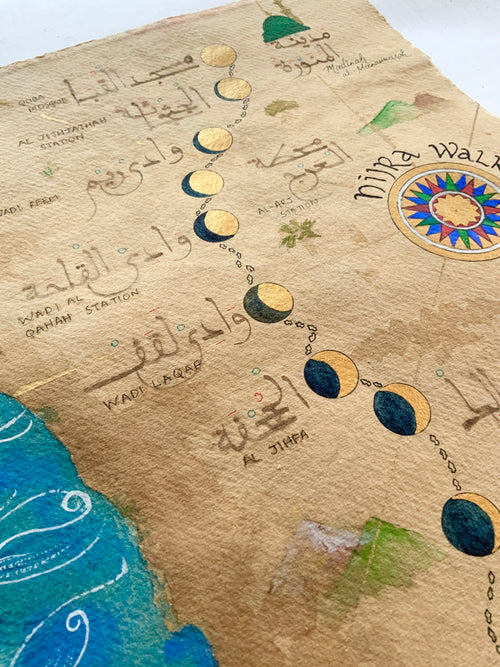 مدينة
المنورة
Madinah
al Munawwarah
مسجد القبا
QUBA
MOSQUE
AL JITHJATHAH
STATION
وادي ريم
WADI REEM
محطة
العرج
AL-ARJ
STATION
HIJRA WALK
وادي القاحة
WADI AL
QAHAH STATION
وادي لقف
WADI LAQAF
الجحفة
AL JIHFA